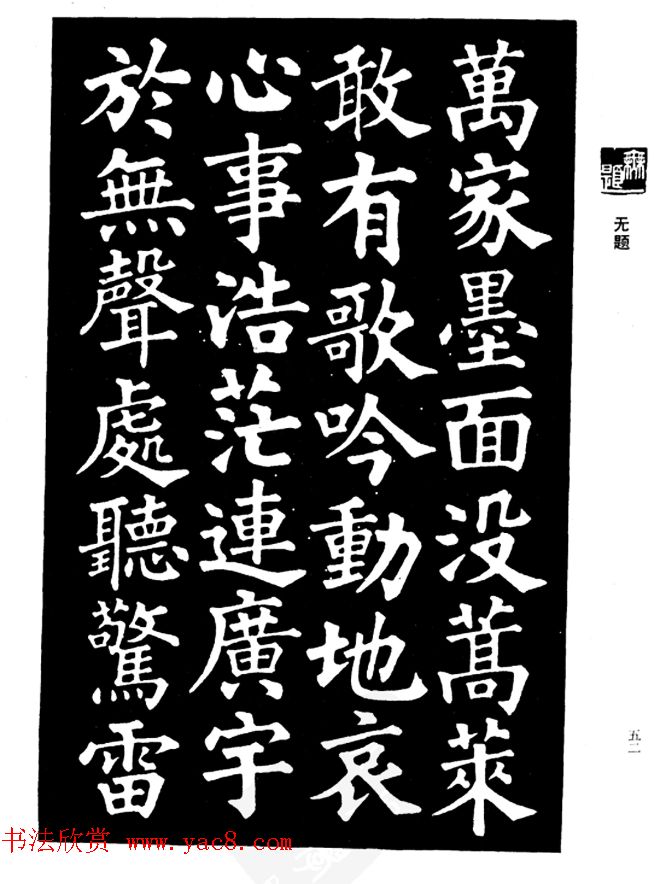 萬家墨面没蒿萊
敢有歌吟動地哀
心事浩茫連廣宇
於無聲處聽驚雷
無題
无题
五二
书法欣赏 www.yac8.com